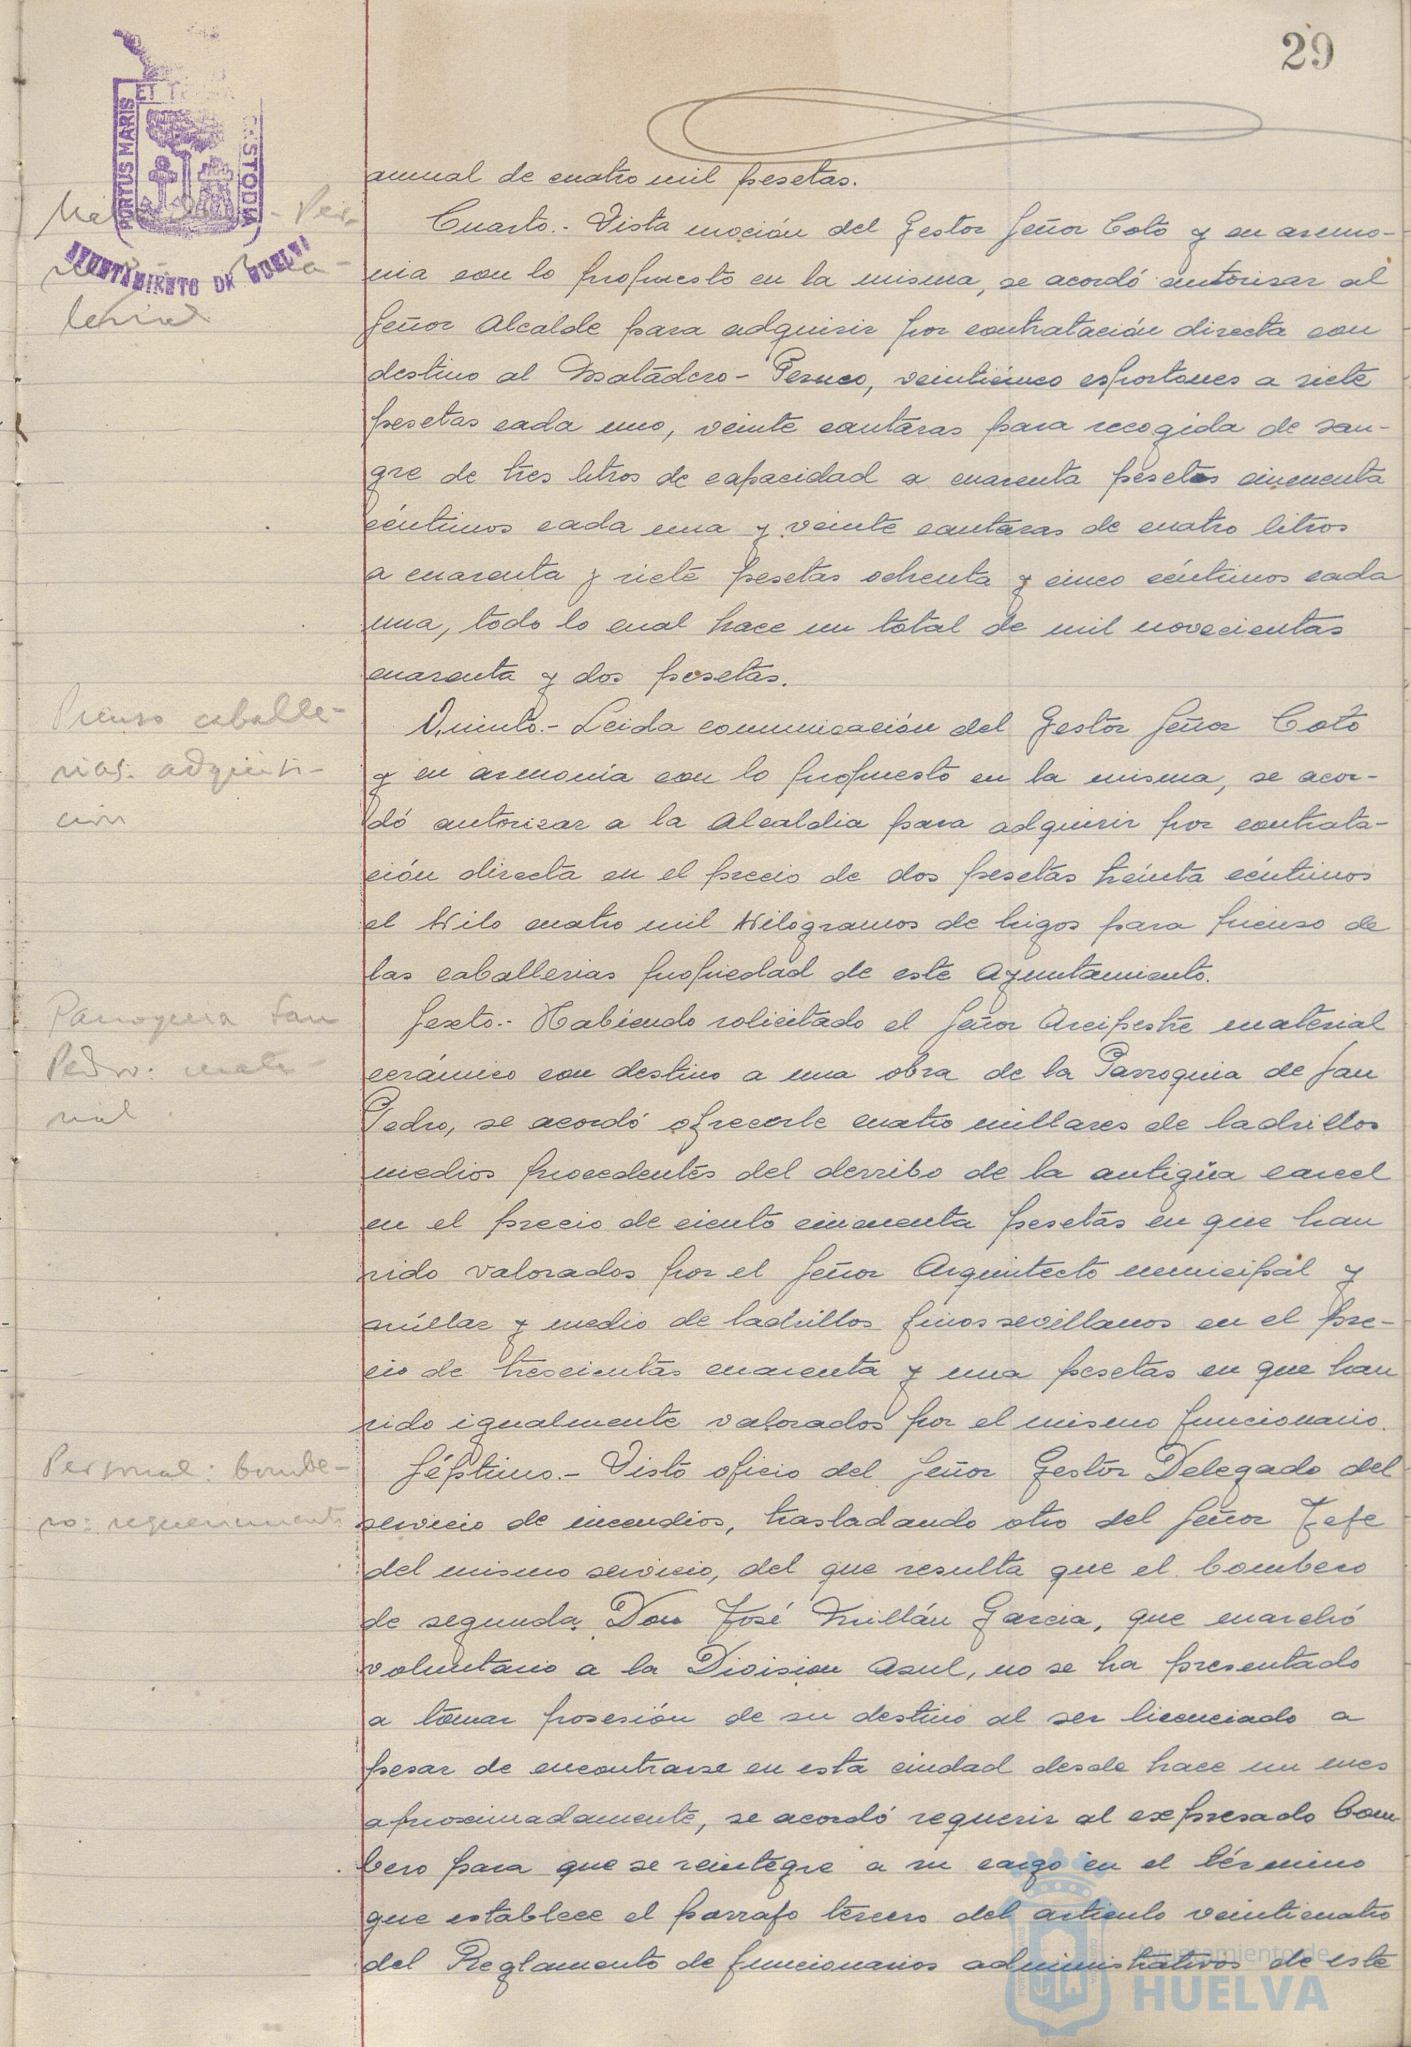 29
PORTUS MARIS ET CUSTODIA
AYUNTAMIENTO DE HUELVA
anual de cuatro mil pesetas.
Cuarto.- Vista moción del Gestor Señor Coto y en armo-
nia con lo propuesto en la misma, se acordó autorizar al
Señor Alcalde para adquirir por contratación directa con
destino al Matadero- Perneo, veinticinco esportones a siete
pesetas cada uno, veinte cantaras para recogida de san-
gre de tres litros de capacidad a cuarenta pesetas cincuenta
céntimos cada una y veinte cantaras de cuatro litros
a cuarenta y siete pesetas ochenta y cinco céntimos cada
una, todo lo cual hace un total de mil novecientas
cuarenta y dos pesetas.
Pienso caballe-
rias: adquisi-
ción
Quinto.- Leida comunicación del Gestor Señor Coto
y en armonia con lo propuesto en la misma, se acor-
dó autorizar a la Alcaldia para adquirir por contrata-
ción directa en el precio de dos pesetas treinta céntimos
el Kilo cuatro mil Kilogramos de higos para pienso de
las caballerias propiedad de este Ayuntamiento.
Parroquia San
Pedro: mate-
rial
Sexto.- Habiendo solicitado el Señor Arcipestre material
cerámico con destino a una obra de la Parroquia de San
Pedro, se acordó ofrecerle cuatro millares de ladrillos
medios procedentes del derribo de la antigüa carcel
en el precio de ciento cincuenta pesetas en que han
sido valorados por el Señor Arquitecto municipal y
millar y medio de ladrillos finos sevillanos en el pre-
cio de trescientas cuarenta y una pesetas en que han
sido igualmente valorados por el mismo funcionario.
Personal: bombe-
ro: requerimiento
Séptimo.- Visto oficio del Señor Gestor Delegado del
servicio de incendios, trasladando otro del Señor Jefe
del mismo servicio, del que resulta que el bombero
de segunda Don José Millán Garcia, que marchó
voluntario a la Division Azul, no se ha presentado
a tomar posesión de su destino al ser licenciado a
pesar de encontrarse en esta ciudad desde hace un mes
aproximadamente, se acordó requerir al expresado bom
bero para que se reintegre a su cargo en el término
que establece el parrafo tercero del articulo veinticuatro
del Reglamento de funcionarios administrativos de este
Ayuntamiento de
HUELVA